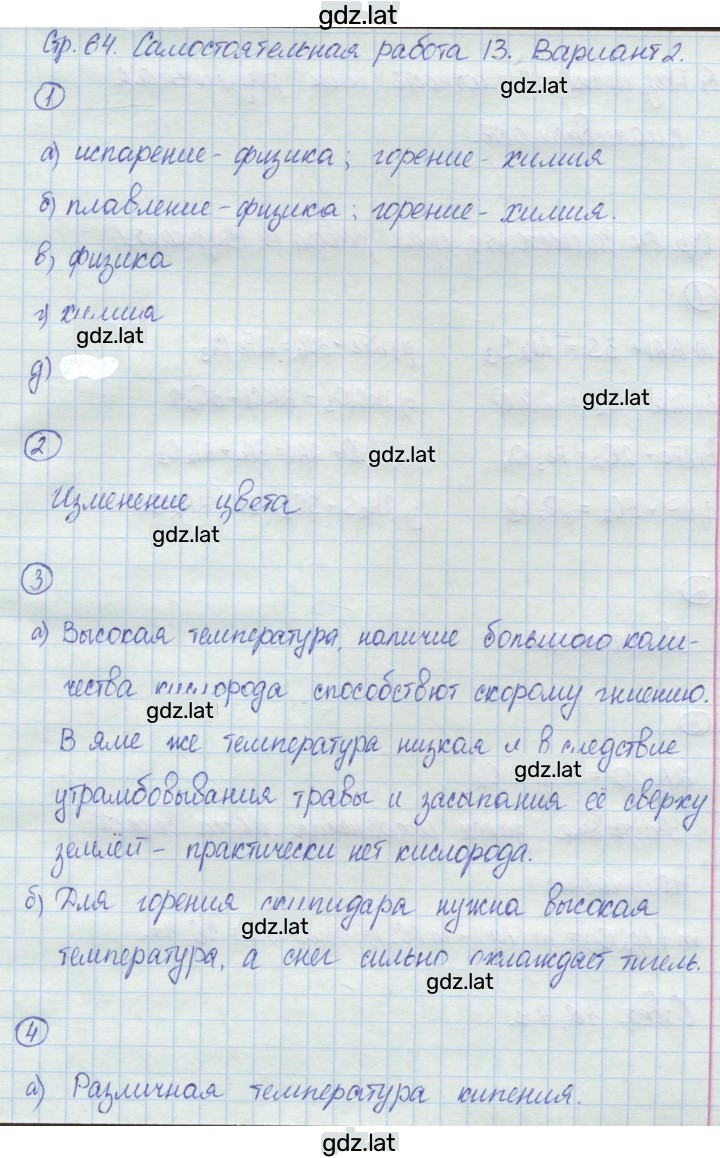 gdz.lat
Стр. 64. Самостоятельная работа 13. Вариант 2.
gdz.lat
1
а) испарение - физика; горение - химия
б) плавление - физика; горение - химия.
в) физика
г) химия
gdz.lat
д)
gdz.lat
2
gdz.lat
Изменение цвета
gdz.lat
3
а) Высокая температура, наличие большого коли-
чества кислорода способствют скорому гниению.
gdz.lat
В яме же температура низкая и вследствие
gdz.lat
утрамбовывания травы и засыпания её сверху
землёй - практически нет кислорода.
б) Для горения скипидара нужна высокая
gdz.lat
температура, а снег сильно охлаждает тигель.
gdz.lat
4
а) Различная температура кипения.
gdz.lat